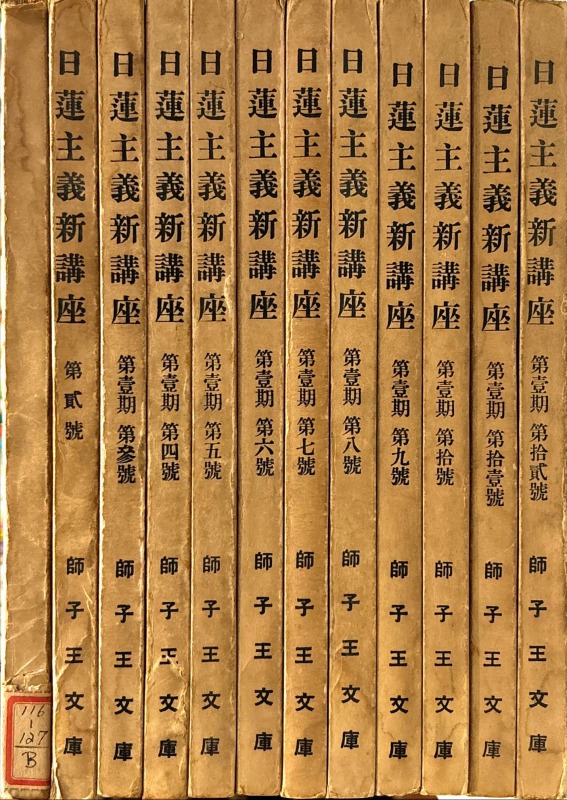 116
127
B
日蓮主義新講座 第貳號 師子王文庫
日蓮主義新講座 第壹期 第參號 師子王文庫
日蓮主義新講座 第壹期 第四號 師子王文庫
日蓮主義新講座 第壹期 第五號 師子王文庫
日蓮主義新講座 第壹期 第六號 師子王文庫
日蓮主義新講座 第壹期 第七號 師子王文庫
日蓮主義新講座 第壹期 第八號 師子王文庫
日蓮主義新講座 第壹期 第九號 師子王文庫
日蓮主義新講座 第壹期 第拾號 師子王文庫
日蓮主義新講座 第壹期 第拾壹號 師子王文庫
日蓮主義新講座 第壹期 第拾貳號 師子王文庫